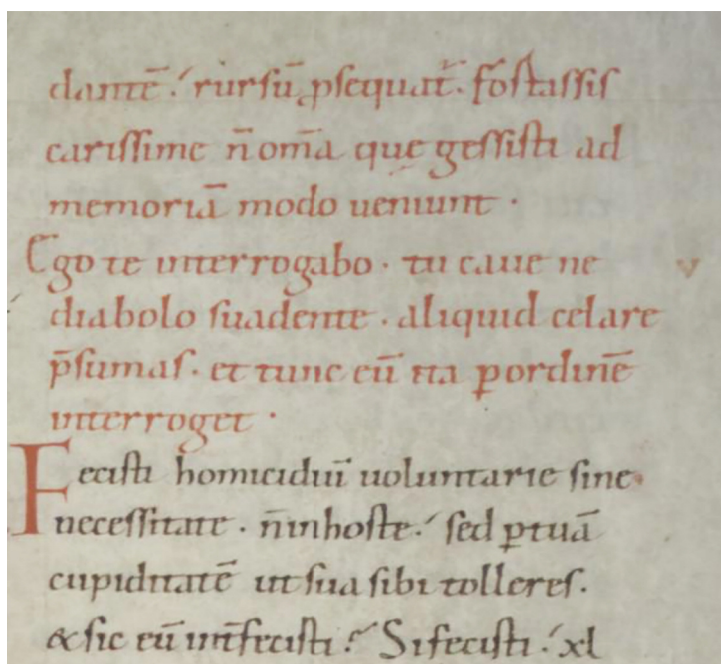 dantē. rursū ꝓsequat̄. fostassis
carissime n̄ om̄a quę gessisti ad
memoriā modo ueniunt.
Ego te interrogabo. tu caue ne
diabolo suadente. aliquid celare
p̄sumas. et tunc eū ita ꝑ ordinē
interroget.
Fecisti homicidiū uoluntarie sine
necessitate. n̄ in hoste. sed ꝑ tuā
cupiditatē ut sua sibi tolleres.
& sic eū int̄fecisti? Si fecisti. xl